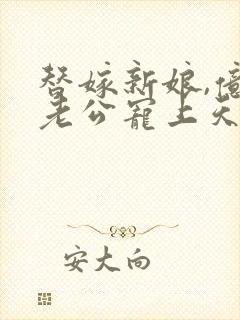 替嫁新娘,億
老公寵上天
安大向